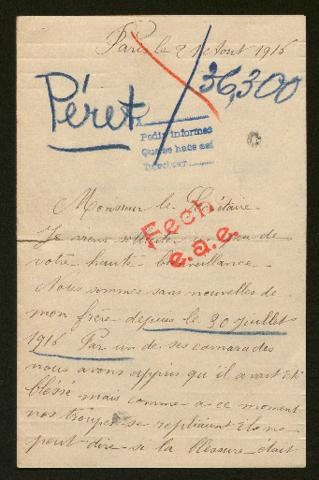 Paris le 2 Aout 1916
36,300
Péret
Pedir informes
Que se hace así
Fech.
e.a.e.
Monsieur le Secrétaire
Je viens solliciter de
votre haute bienveillance.
Nous sommes sans nouvelles de
mon frère depuis le 30 Juillet
1916 Par un de ses camarades
nous avons appris qu'il avait été
blessé mais comme a ce moment
nos troupes se repliaient il ne
peut dire si la blessure était